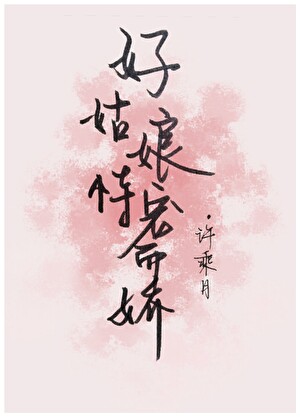 好姑娘恃宠而娇
·许乘月